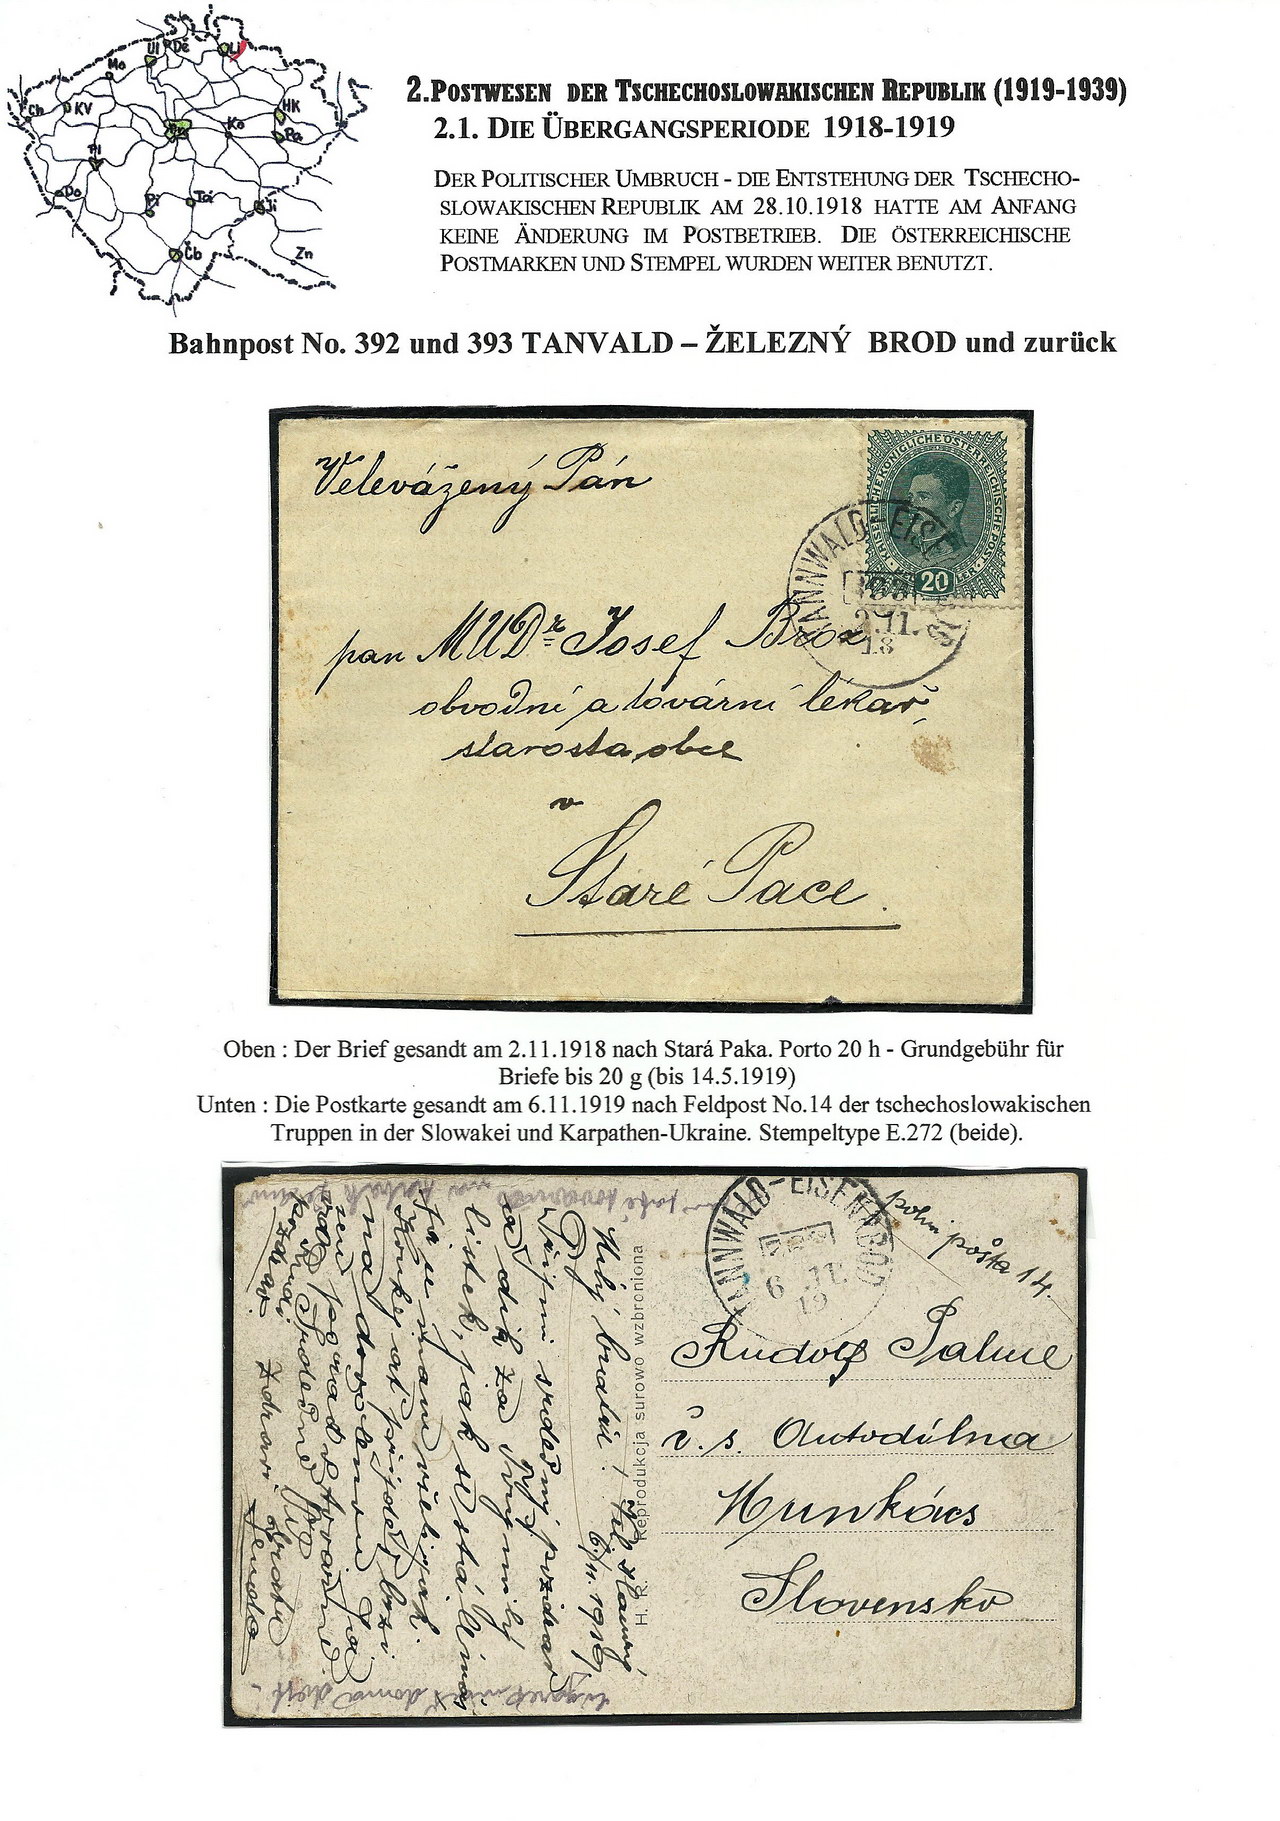 Ul
Dě
Li
Mo
Ch
KV
HK
Ko
Pa
Pl
Do
Pí
Tá
Ji
Čb
Zn
2.POSTWESEN DER TSCHECHOSLOWAKISCHEN REPUBLIK (1919-1939)
2.1. DIE ÜBERGANGSPERIODE 1918-1919
DER POLITISCHER UMBRUCH - DIE ENTSTEHUNG DER TSCHECHO-
SLOWAKISCHEN REPUBLIK AM 28.10.1918 HATTE AM ANFANG
KEINE ÄNDERUNG IM POSTBETRIEB. DIE ÖSTERREICHISCHE
POSTMARKEN UND STEMPEL WURDEN WEITER BENUTZT.
Bahnpost No. 392 und 393 TANVALD – ŽELEZNÝ BROD und zurück
Velevážený Pán
KAISERLICHE KÖNIGLICHE ÖSTERREICHISCHE POST
20
TANNWALD-EISE
2.11.
18
pan MUDr Josef Brož
obvodní a tovární lékař,
starosta obce
v
Staré Pace.
Oben : Der Brief gesandt am 2.11.1918 nach Stará Paka. Porto 20 h - Grundgebühr für
Briefe bis 20 g (bis 14.5.1919)
Unten : Die Postkarte gesandt am 6.11.1919 nach Feldpost No.14 der tschechoslowakischen
Truppen in der Slowakei und Karpathen-Ukraine. Stempeltype E.272 (beide).
TANNWALD-EISENBROD
6 11.
19
polní pošta 14.
Rudolf
č. s. Autodílna
Munkács
Slovensko
H. K. Reprodukcja surowo wzbroniona
6./11. 1919
Milý bratře!
Přijmi srdečný pozdrav
a dík za Tvůj milý
lístek, jak se stá